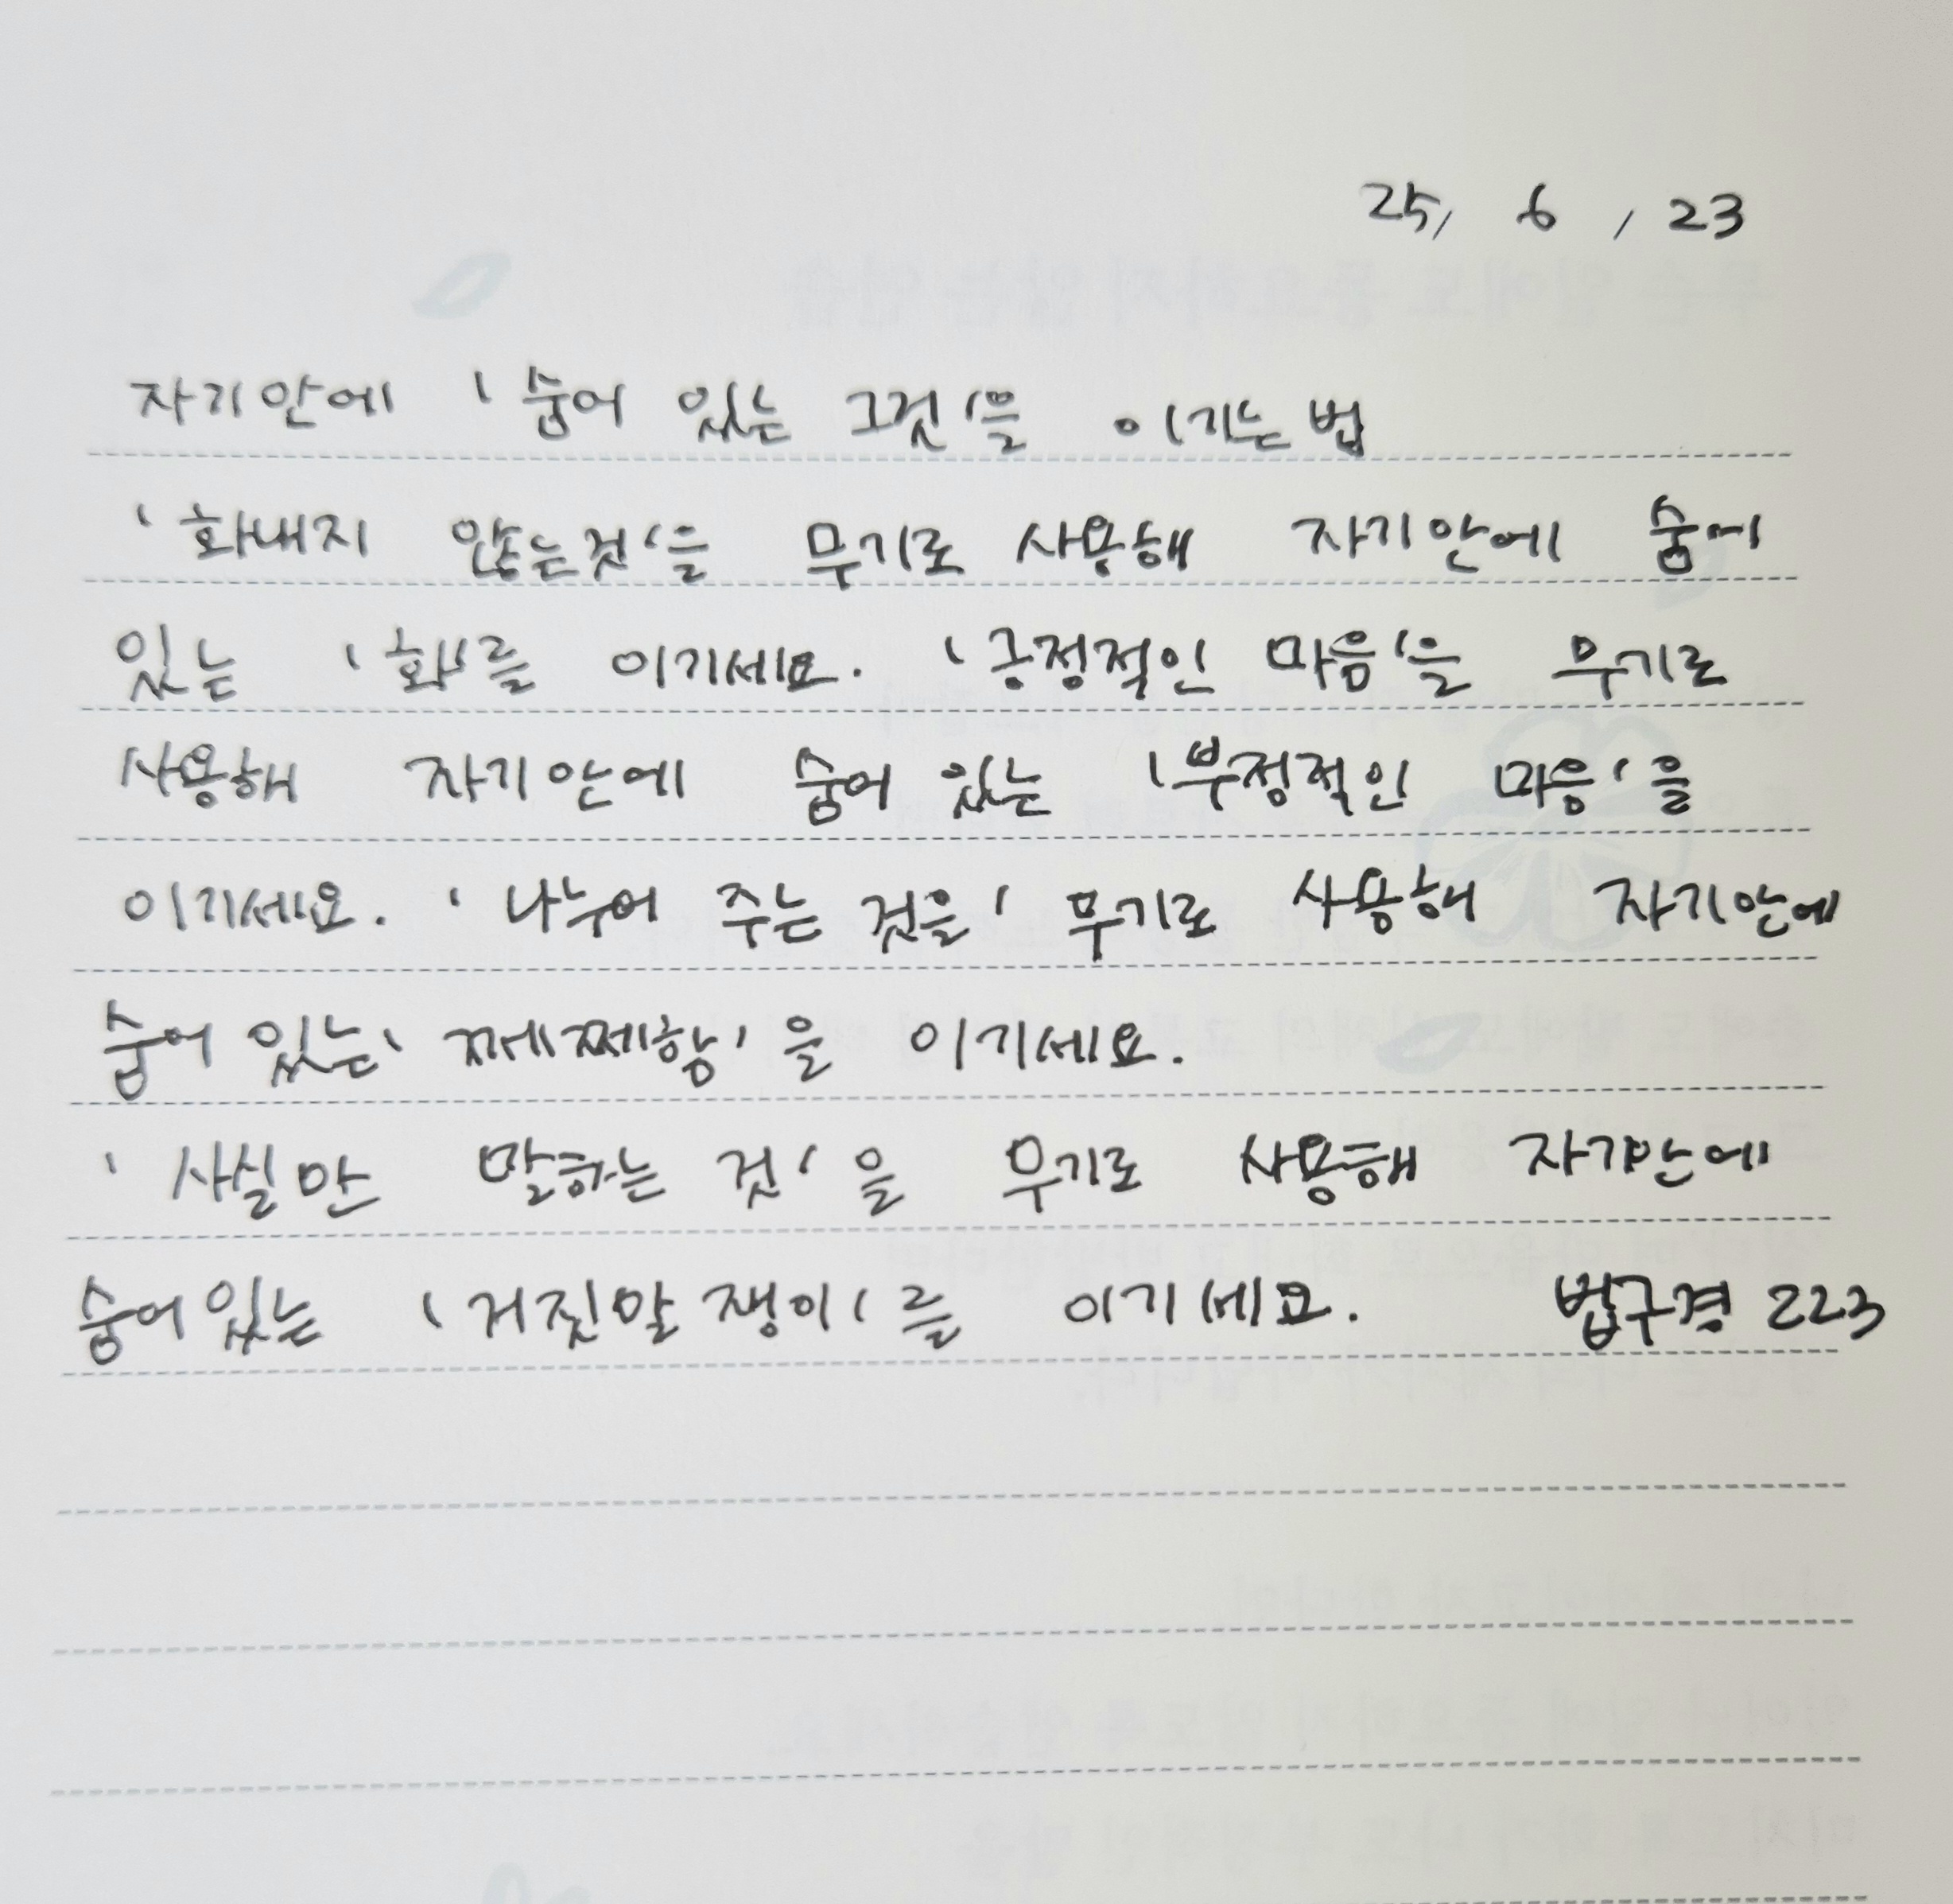 25, 6, 23
자기안에 '숨어 있는 그것'을 이기는 법
'화내지 않는것'을 무기로 사용해 자기안에 숨어
있는 '화'를 이기세요. '긍정적인 마음'을 무기로
사용해 자기안에 숨어 있는 '부정적인 마음'을
이기세요. '나누어 주는 것을' 무기로 사용해 자기안에
숨어 있는 '쩨쩨함'을 이기세요.
'사실만 말하는 것'을 무기로 사용해 자기안에
숨어있는 '거짓말 쟁이'를 이기세요. 법구경 223